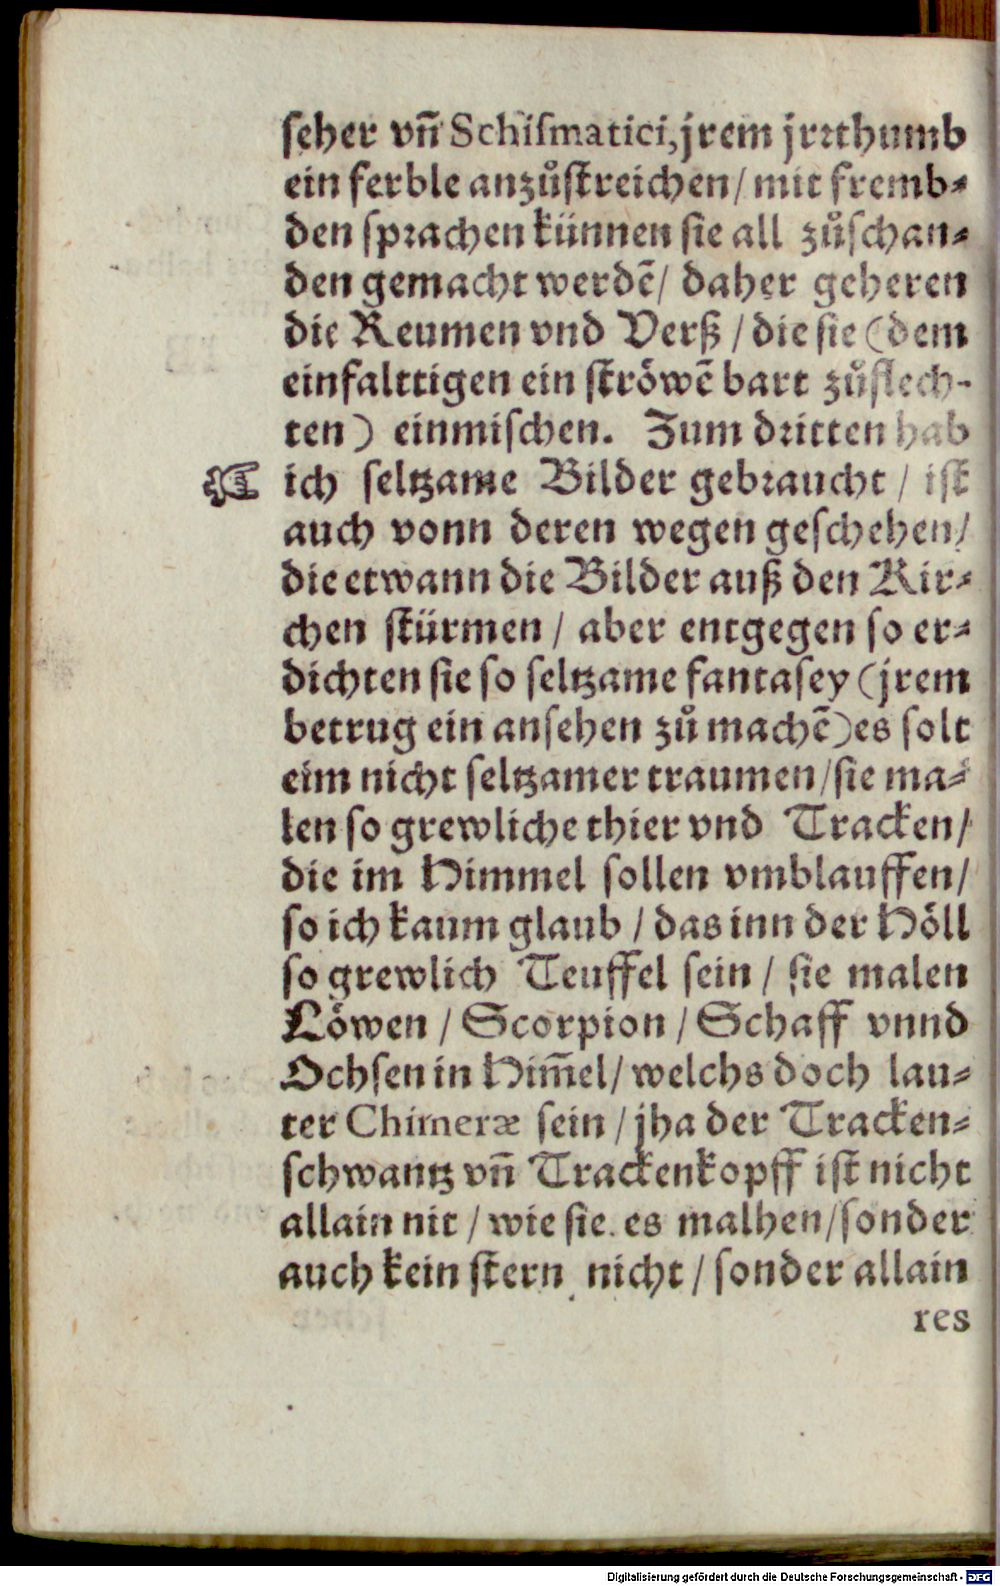 seher vñ Schismatici, jrem jrrthumb
ein ferble anzůstreichen / mit fremb-
den sprachen künnen sie all zůschan-
den gemacht werdẽ / daher geheren
die Reumen vnd Verß / die sie (dem
einfalttigen ein ströwẽ bart zůflech-
ten) einmischen. Zum dritten hab
☞ ich seltzame Bilder gebraucht / ist
auch vonn deren wegen geschehen /
die etwann die Bilder auß den Kir-
chen stürmen / aber entgegen so er-
dichten sie so seltzame fantasey (jrem
betrug ein ansehen zů machẽ) es solt
eim nicht seltzamer traumen / sie ma-
len so grewliche thier vnd Tracken /
die im Himmel sollen vmblauffen /
so ich kaum glaub / das inn der Höll
so grewlich Teuffel sein / sie malen
Löwen / Scorpion / Schaff vnnd
Ochsen in Him̃el / welchs doch lau-
ter Chimeræ sein / jha der Tracken-
schwantz vñ Trackenkopff ist nicht
allain nit / wie sie es malhen / sonder
auch kein stern nicht / sonder allain
res
Digitalisierung gefördert durch die Deutsche Forschungsgemeinschaft - DFG